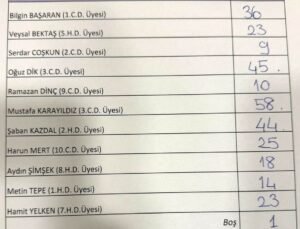 Bilgin BAŞARAN (1.C.D. Üyesi) 36
Veysal BEKTAŞ (5.H.D. Üyesi) 23
Serdar COŞKUN (2.C.D. Üyesi) 9
Oğuz DİK (3.C.D. Üyesi) 45.
Ramazan DİNÇ (9.C.D. Üyesi) 10
Mustafa KARAYILDIZ (3.C.D. Üyesi) 58.
Şaban KAZDAL (2.H.D. Üyesi) 44.
Harun MERT (10.C.D. Üyesi) 25
Aydın ŞİMŞEK (8.H.D. Üyesi) 18
Metin TEPE (1.H.D. Üyesi) 14
Hamit YELKEN (7.H.D. Üyesi) 23
Boş 1